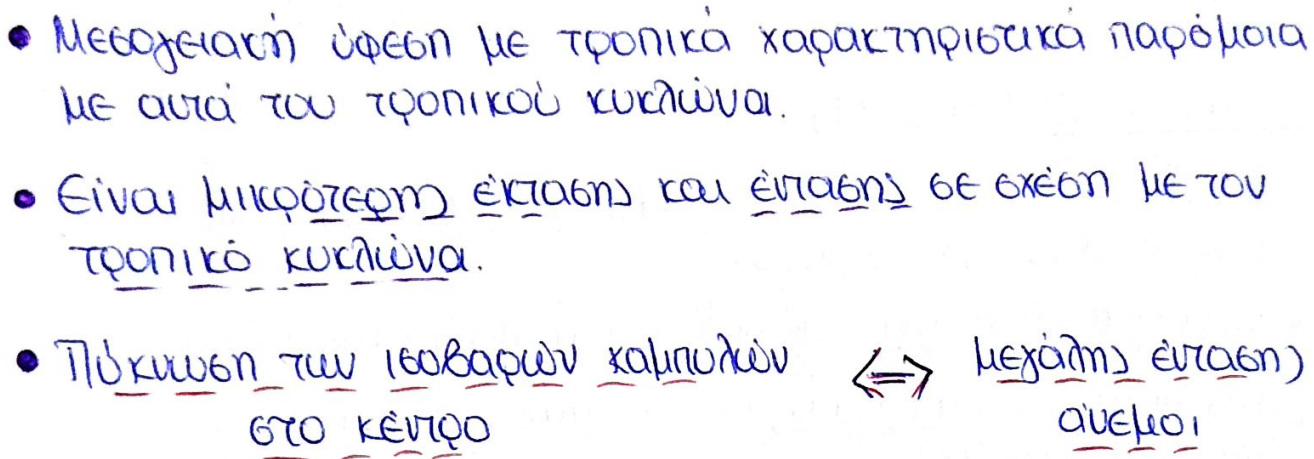 • Μεσογειακή ύφεση με τροπικά χαρακτηριστικά παρόμοια
με αυτά του τροπικού κυκλώνα.
• Είναι μικρότερης έκτασης και έντασης σε σχέση με τον
τροπικό κυκλώνα.
• Πύκνωση των ισοβαρών καμπυλών ⟺ μεγάλης έντασης
στο κέντρο άνεμοι